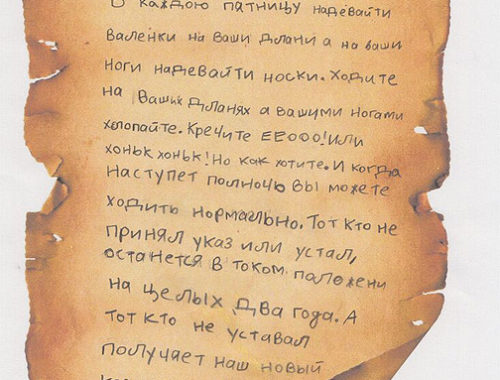 В каждою патницу надевайти
валенки на ваши длани а на ваши
ноги надевайти носки. Ходите
на Ваших дланях а вашими ногами
хлопайте. Кречите ЕЕООО! или
хоньк хоньк! Но как хотите. И когда
наступет полночь вы можете
ходить нормально. Тот кто не
принял указ или устал,
останется в током паложени
на целых два года. А
тот кто не уставал
получает наш новый